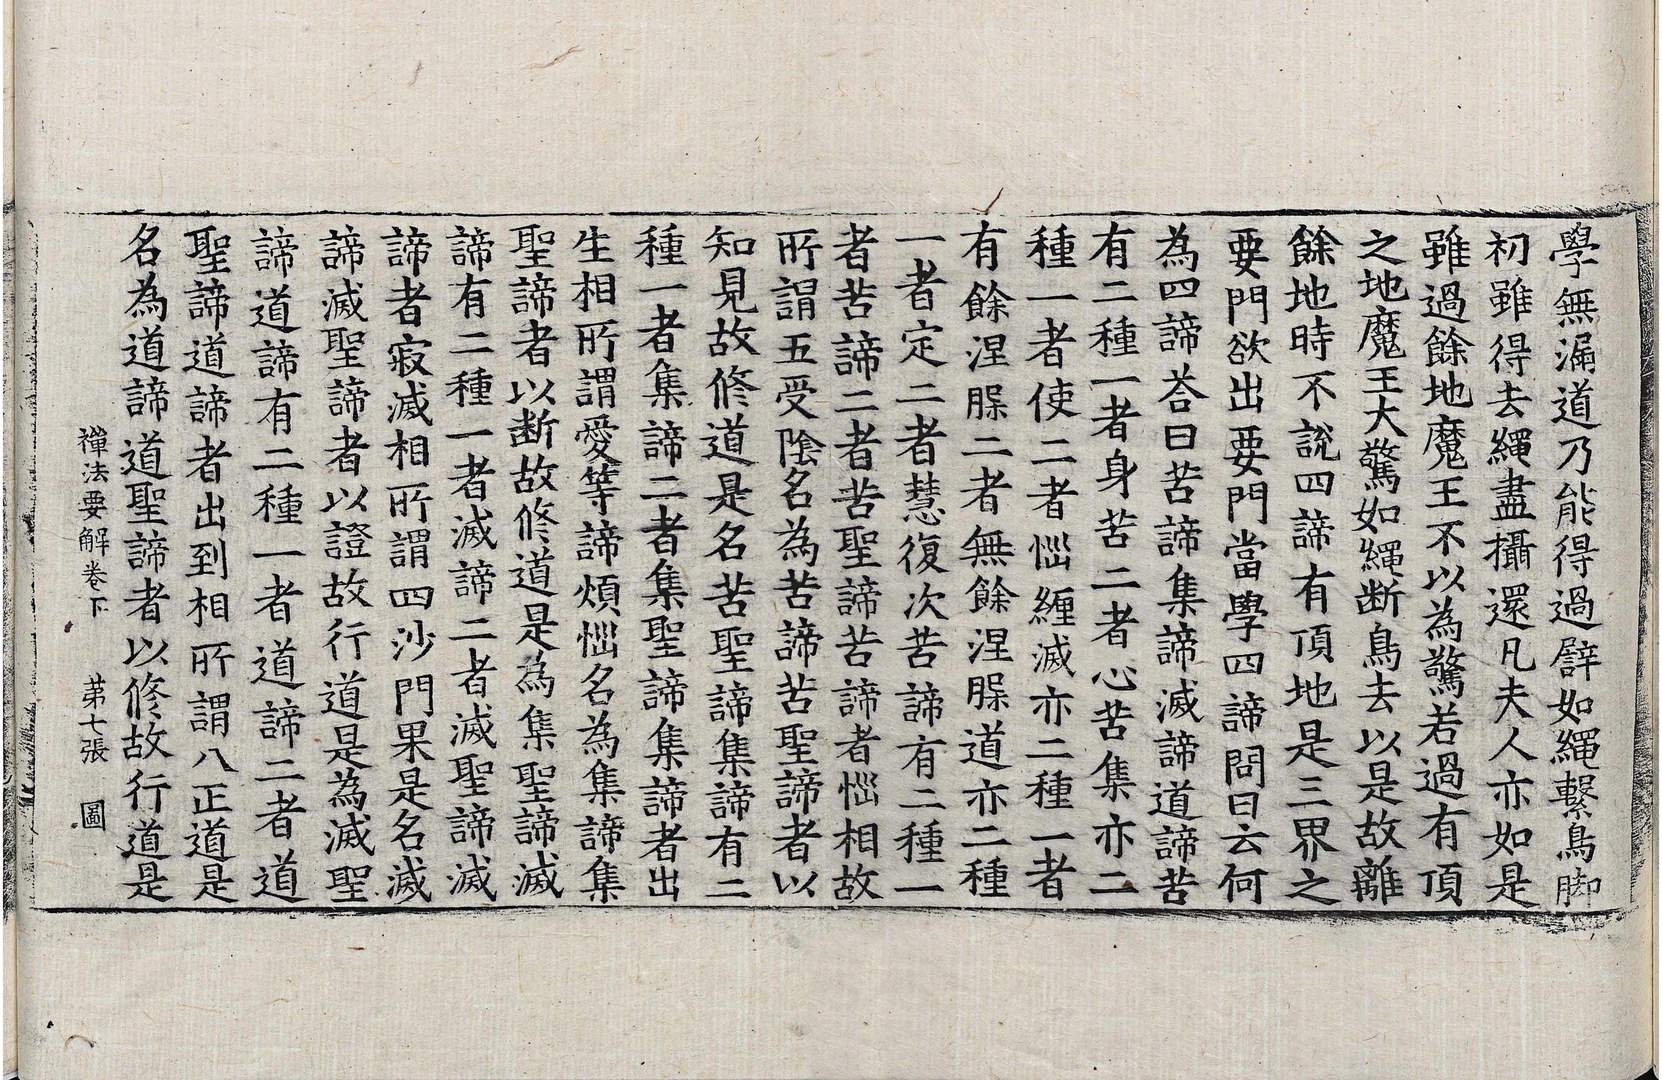 學無漏道乃能得過譬如繩繫鳥脚
初雖得去繩盡攝還凡夫人亦如是
雖過餘地魔王不以為驚若過有頂
之地魔王大驚如繩断鳥去以是故離
餘地時不說四諦有頂地是三界之
要門欲出要門當學四諦問曰云何
為四諦荅曰苦諦集諦滅諦道諦苦
有二種一者身苦二者心苦集亦二
種一者使二者惱纏滅亦二種一者
有餘涅槃二者無餘涅槃道亦二種
一者定二者慧復次苦諦有二種一
者苦諦二者苦聖諦苦諦者惱相故
所謂五受陰名為苦諦苦聖諦者以
知見故修道是名苦聖諦集諦有二
種一者集諦二者集聖諦集諦者出
生相所謂愛等諦煩惱名為集諦集
聖諦者以断故修道是為集聖諦滅
諦有二種一者滅諦二者滅聖諦滅
諦者寂滅相所謂四沙門果是名滅
諦滅聖諦者以證故行道是為滅聖
諦道諦有二種一者道諦二者道
聖諦道諦者出到相所謂八正道是
名為道諦道聖諦者以修故行道是
禪法要解卷下 苐七張 圖